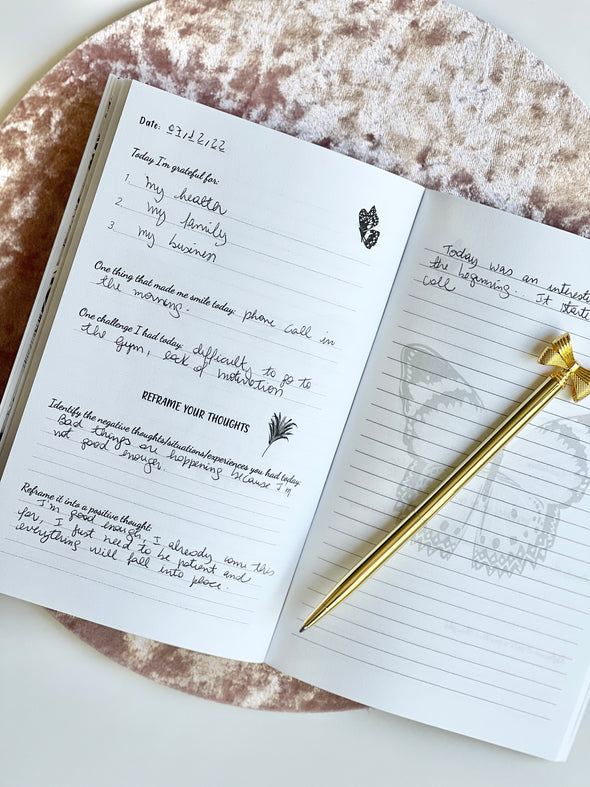 Date: 07,12,22
Today I'm grateful for:
1. my health
2. my family
3. my business
One thing that made me smile today: phone call in
the morning.
One challenge I had today: difficulty to go to
the gym, lack of motivation
REFRAME YOUR THOUGHTS
Identify the negative thoughts/situations/experiences you had today:
Bad things are happening because I'm
not good enough.
Reframe it into a positive thought:
I'm good enough, I already came this
far, I just need to be patient and
everything will fall into place.
Today was an interesti
the beginning... It starte
call